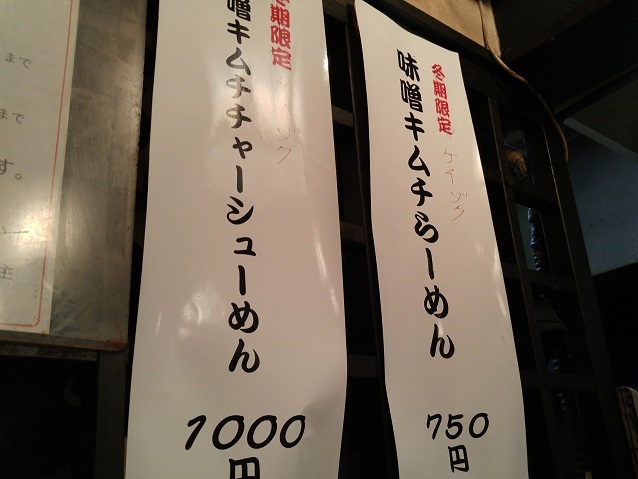 冬期限定
ケイゾク
味噌キムチらーめん
750
円
期限定
ケイゾク
噌キムチチャーシューめん
1000
円
まで
まで
す。